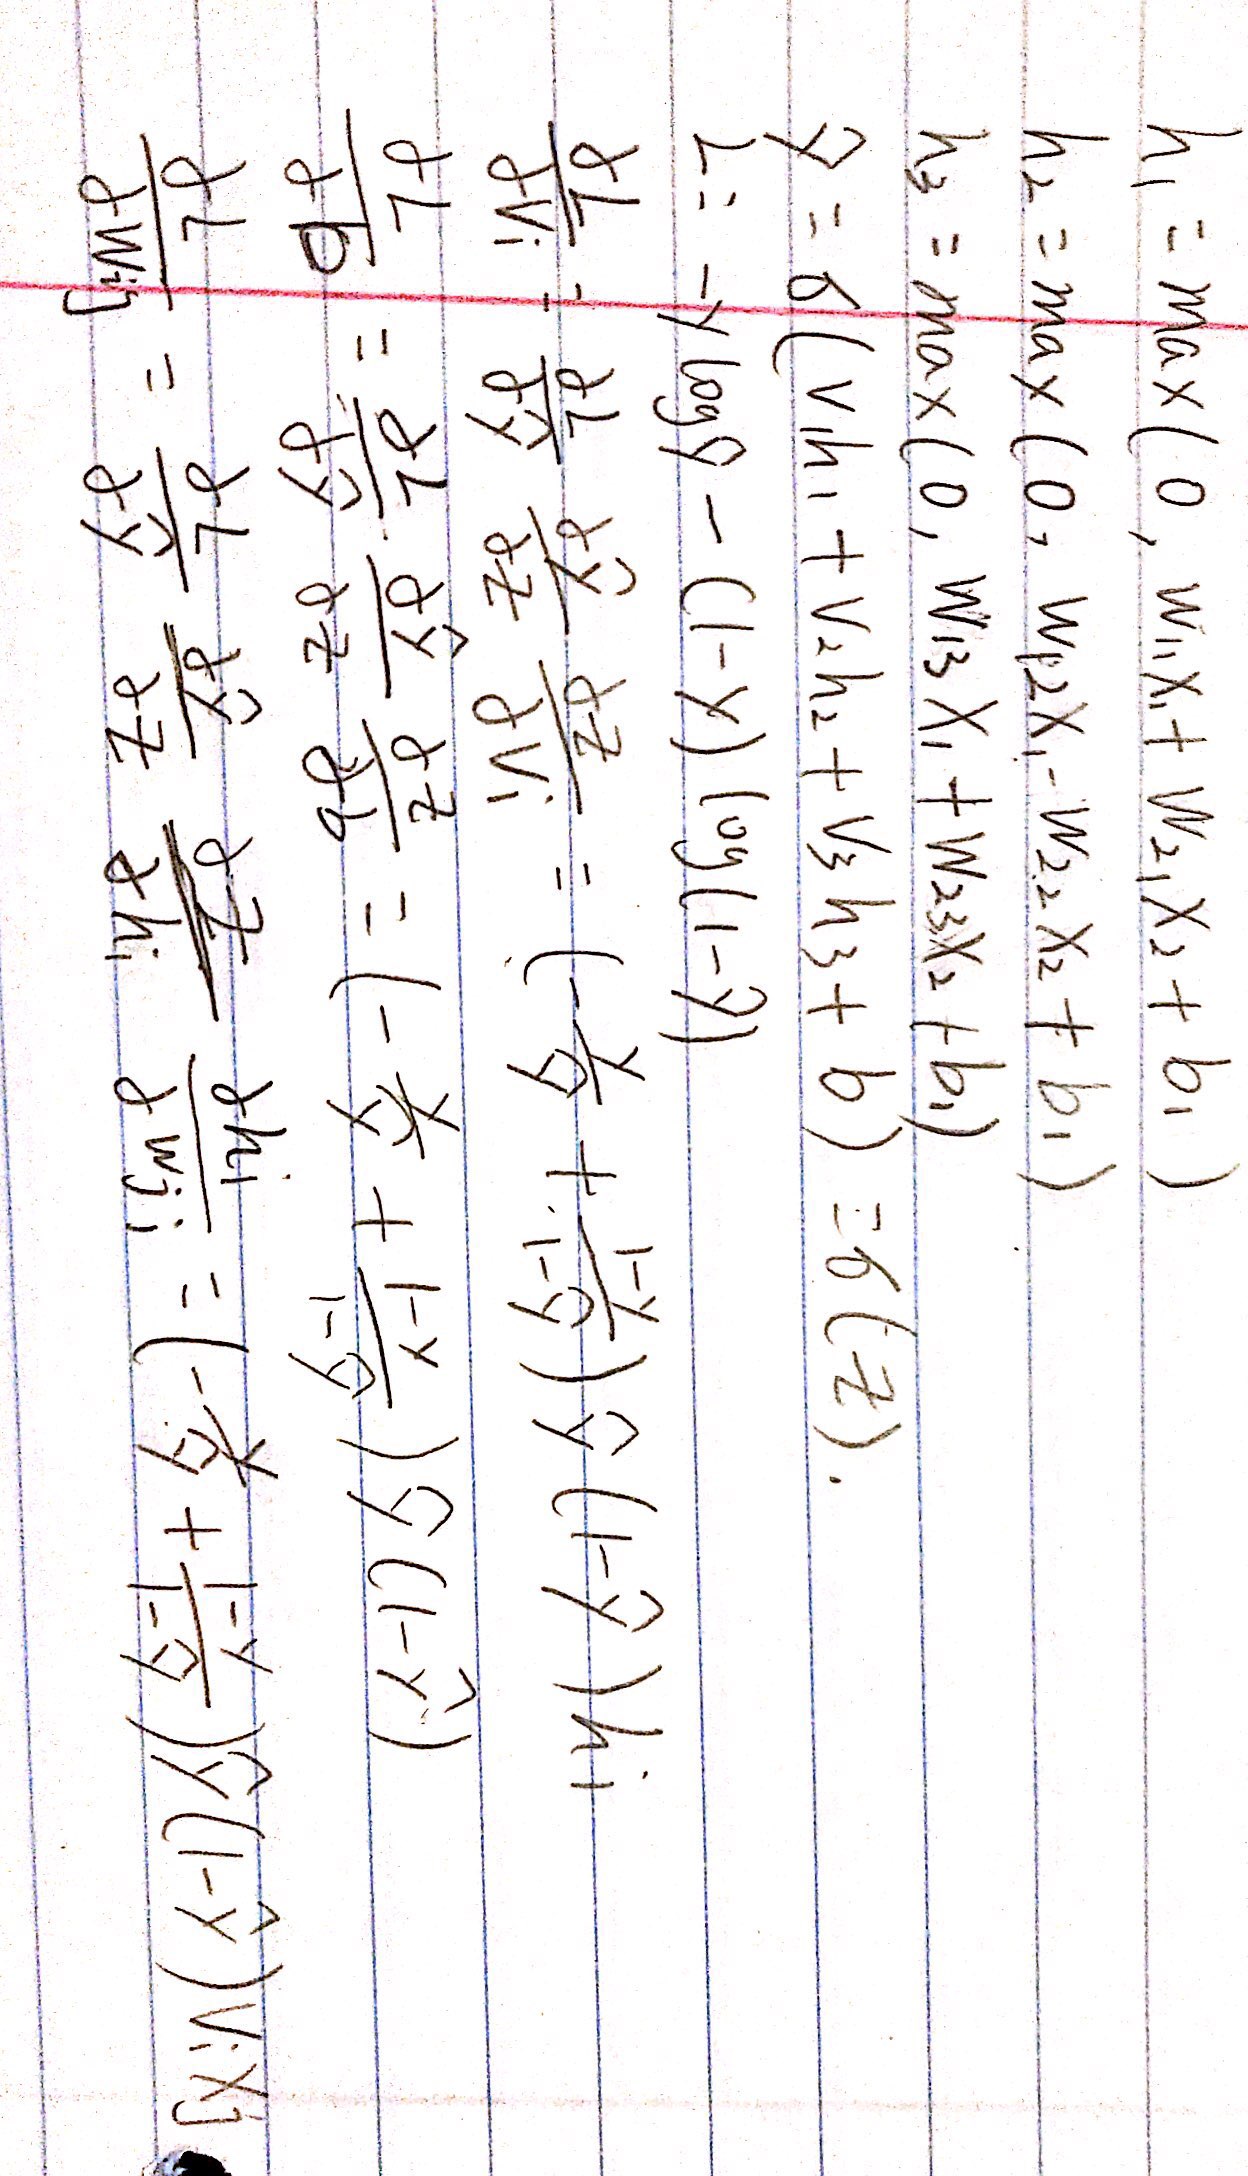 h₁ = max(0, w₁₁x₁ + w₂₁x₂ + b₁)
h₂ = max(0, w₁₂x₁ - w₂₂x₂ + b₁)
h₃ = max(0, w₁₃x₁ + w₂₃x₂ + b₁)
ŷ = σ(v₁h₁ + v₂h₂ + v₃h₃ + b) = σ(z).
L = -y log ŷ - (1-y) log(1-ŷ)
∂L/∂vᵢ = ∂L/∂ŷ ∂ŷ/∂z ∂z/∂vᵢ = (-y/ŷ + (1-y)/(1-ŷ)) ŷ(1-ŷ)hᵢ
∂L/∂b = ∂L/∂ŷ · ∂ŷ/∂z ∂z/∂b = (-y/ŷ + (1-y)/(1-ŷ)) ŷ(1-ŷ)
∂L/∂wᵢⱼ = ∂L/∂ŷ ∂ŷ/∂z ∂z/∂hᵢ ∂hᵢ/∂wⱼᵢ = (-y/ŷ + (1-y)/(1-ŷ)) ŷ(1-ŷ)vᵢxⱼ